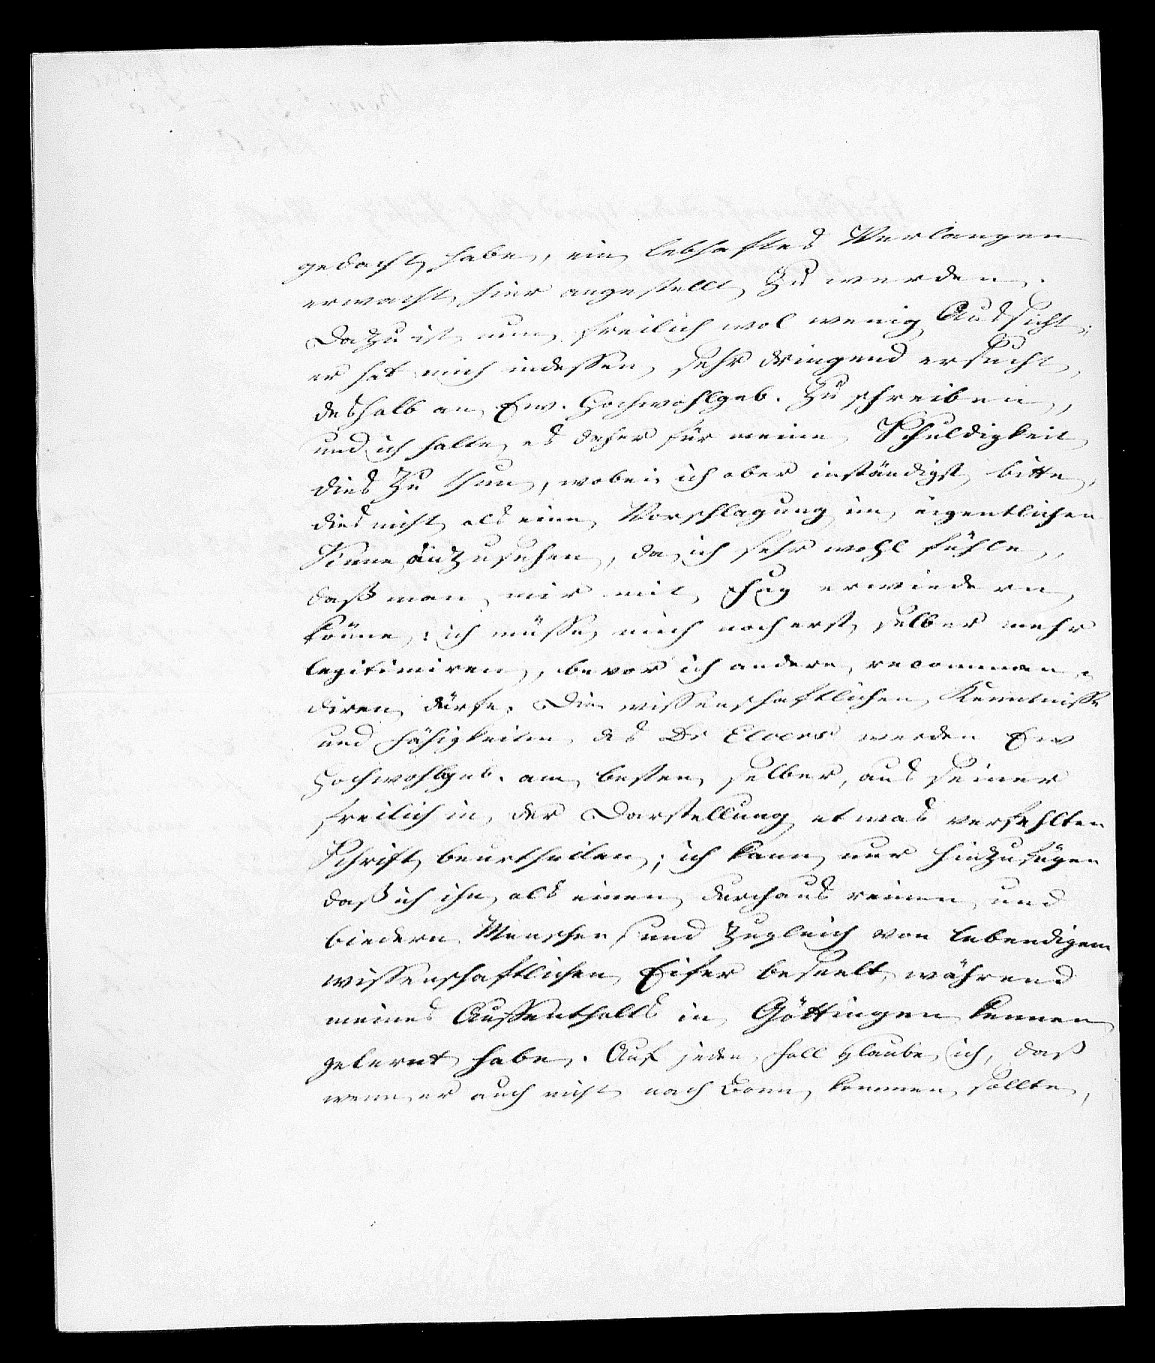 gedacht habe, ein lebhaftes Verlangen
erwacht, hier angestellt zu werden.
Dazu ist nun freilich wol wenig Aussicht;
er hat mich indessen, sehr dringend ersucht,
deshalb an Ew. Hochwohlgeb. zu schreiben,
und ich halte es daher für meine Schuldigkeit,
dies zu thun, wobei ich aber inständigst bitte,
dies nicht als eine Vorschlagung im eigentlichen
Sinne anzusehen, da ich sehr wohl fühle,
daß man mir mit Fug erwiedern
könne, ich müsse mich noch erst selber mehr
legitimiren, bevor ich andere recomman-
diren dürfe. Die wissenschaftlichen Kenntnisse
und Fähigkeiten des Dr Elvers werden Ew
Hochwohlgeb. am besten selber, aus seiner
freilich in der Darstellung etwas verfehlten
Schrift beurtheilen; ich kann nur hinzufügen
daß ich ihn als einen durchaus reinen und
biedern Menschen und zugleich von lebendigem
wissenschaftlichen Eifer beseelt während
meines Aufenthalts in Göttingen kennen
gelernt habe. Auf jeden Fall glaube ich, daß
wenn er auch nicht nach Bonn kommen sollte,